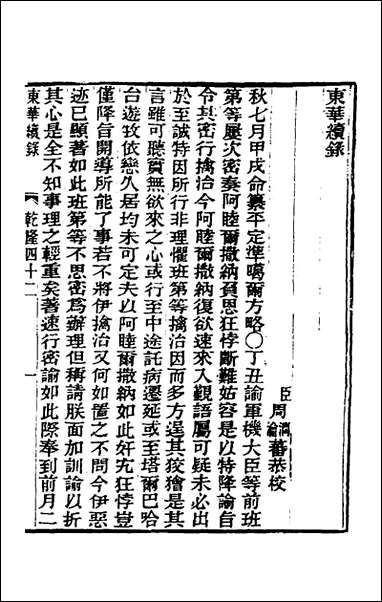 東華續錄
臣周潤瀹蕃恭校
秋七月甲戌命纂平定準噶爾方略〇丁丑諭軍機大臣等前班
第等屢次密奏阿睦爾撒納負恩狂悖斷難姑容是以特降諭旨
令其密行擒治今阿睦爾撒納復欲速來入覲語屬可疑未必出
於至誠特因所行非理懼班第等擒治因而多方逞其狡獪是其
言雖可聽實無欲來之心或行至中途託病遷延或至塔爾巴哈
台遊牧依戀久居均未可定夫以阿睦爾撒納如此奸宄狂悖豈
僅降旨開導所能了事若不將伊擒治又何如置之不問今伊惡
迹已顯著如此班第等不思密爲辦理但稱請朕面加訓諭以折
其心是全不知事理之輕重矣著速行密諭如此際奉到前月二
東華續錄 乾隆四十二 一